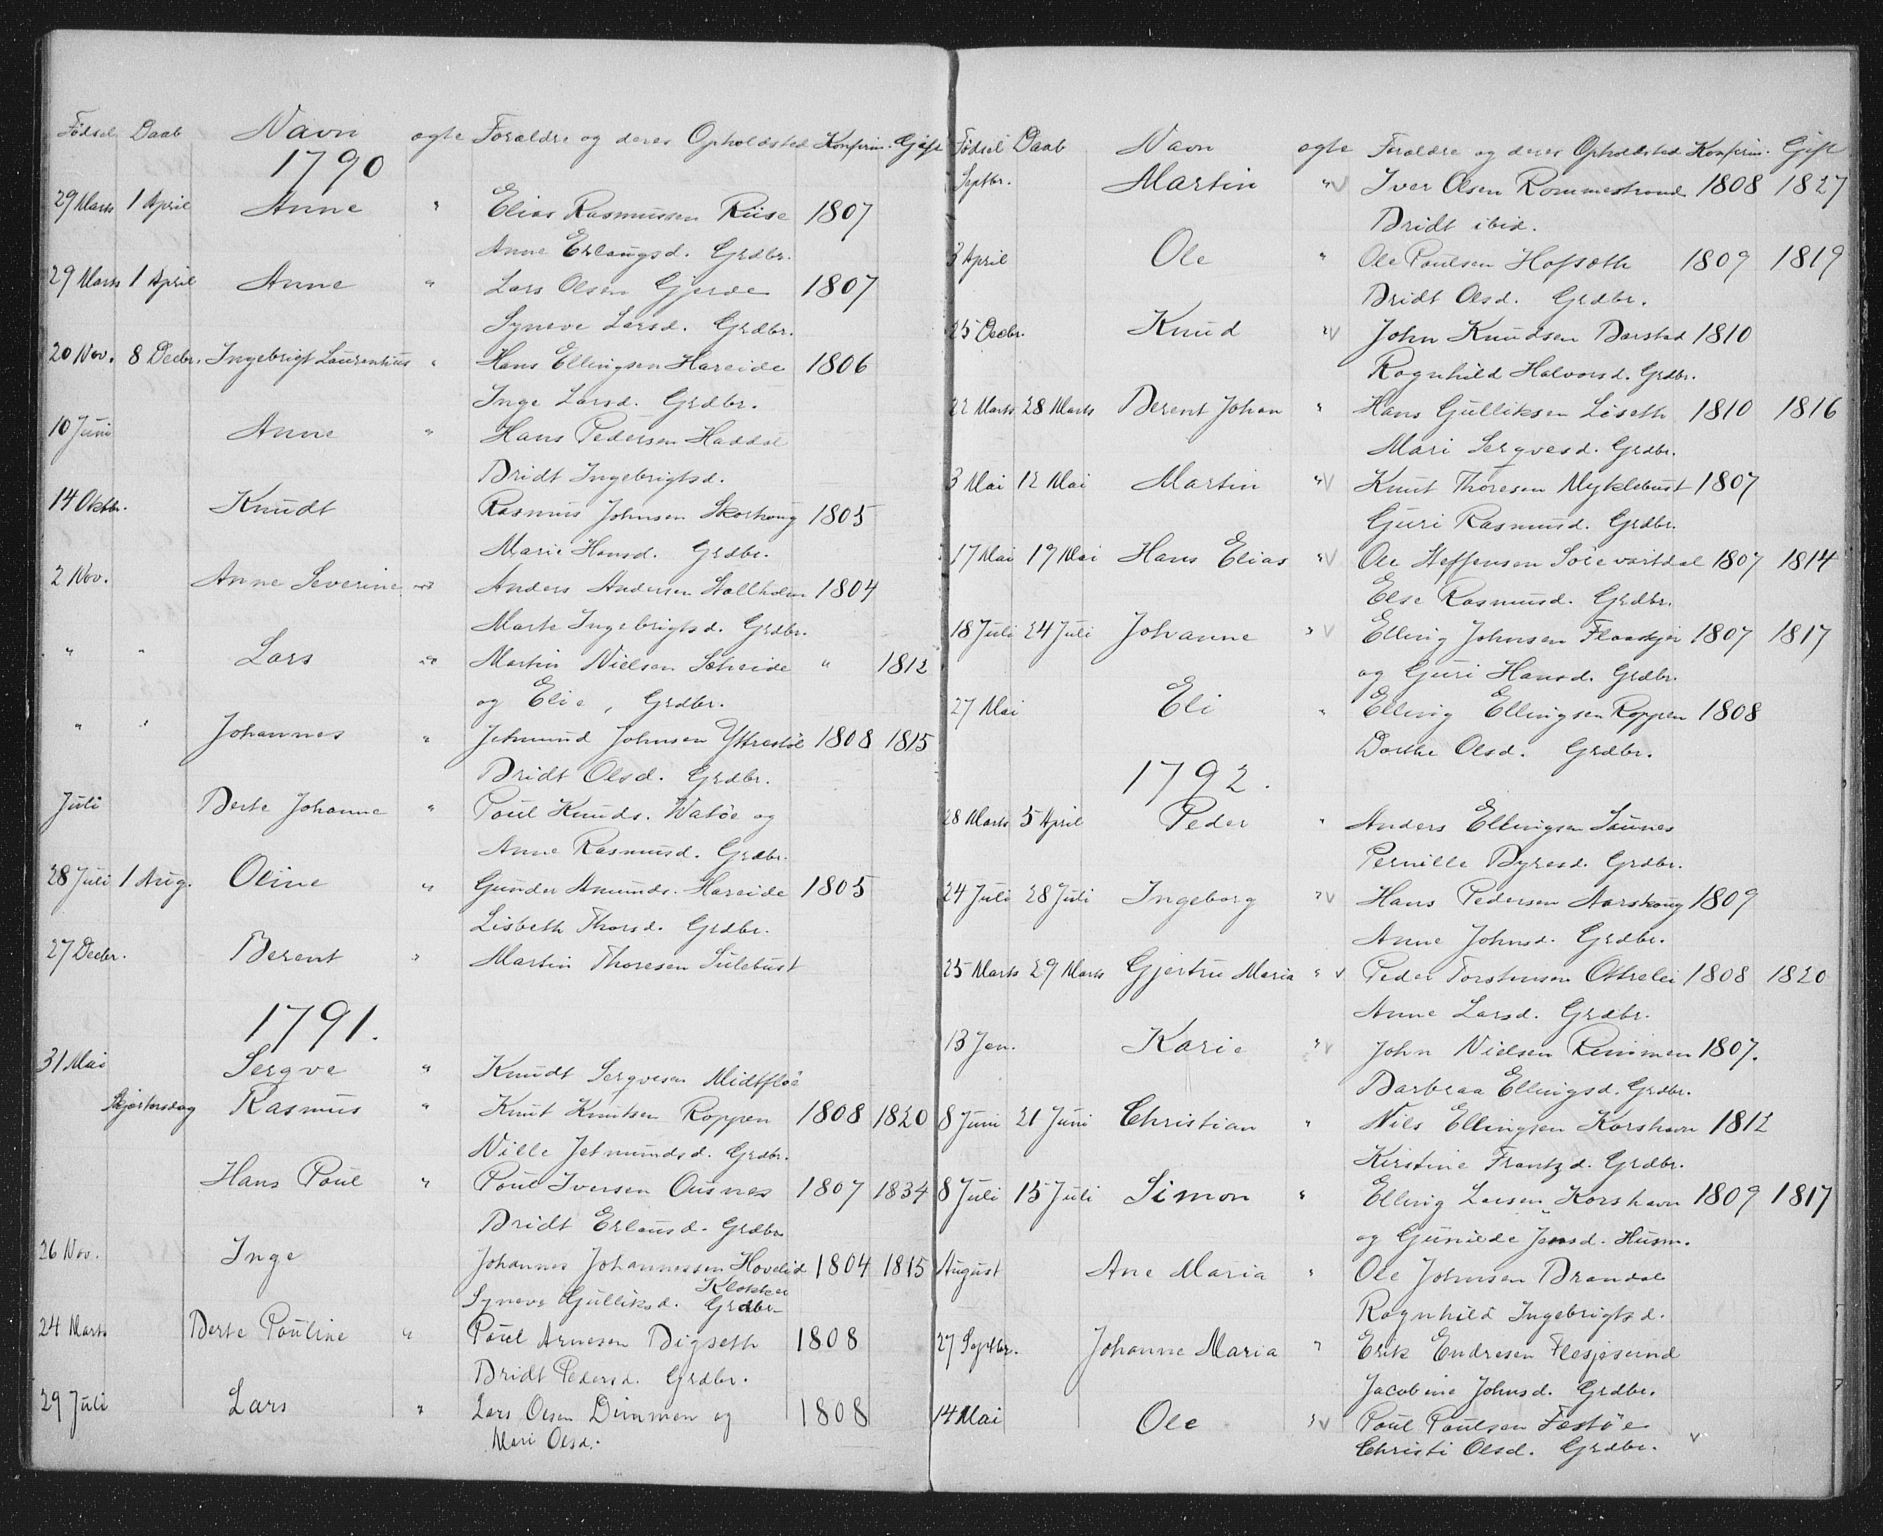 Fødsel Daab Navn ægte Forældre og deres Opholdsted Konfirm. Gift
1790
29 Marts 1 April Anne " Elias Rasmussen Riise 1807
Anne Erlaugsd. Grdbr.
29 Marts 1 April Anne " Lars Olsen Gjerde 1807
Syneve Larsd. Grdbr.
20 Nov. 8 Decbr. Ingebrigt Laurentius " Hans Ellingsen Hareide 1806
Inge Larsd. Grdbr.
10 Juni Anne " Hans Pedersen Haddal
Bridt Ingebrigtsd.
14 Oktbr. Knudt Rasmus Johnsen Skorkeng 1805
Marie Hansd. Grdbr.
2 Nov. Anne Severine Anders Andersen Hallholm 1804
Marte Ingebrigtsd. Grdbr.
" " Lars Martin Nielsen Sætreide " 1812
og Elie, Grdbr.
" " Johannes " Jetmund Johnsen Yttrestøl 1808 1815
Bridt Olsd. Grdbr.
Juli Berte Johanne " Poul Knuds. Watøe og
Anne Rasmusd. Grdbr.
28 Juli 1 Aug. Oline " Gunder Amunds. Hareide 1805
Lisbeth Thorsd. Grdbr.
27 Decbr. Berent " Martin Thoresen Sulebust
1791.
31 Mai Sergve " Knudt Sergvesen Midtfløe
Skjærtorsdag Rasmus " Knut Knutsen Roppen 1808 1820
Nille Jetmundsd. Grdbr.
Hans Poul " Poul Iversen Ousnes 1807 1834
Bridt Erlausd. Grdbr.
26 Nov. Inge Johannes Johannessen Hovelid 1804 1815
Klokker
Syneve Gulliksd. Grdbr.
24 Marts Berte Pouline " Poul Arnesen Bigseth 1808
Bridt Pedersd. Grdbr.
29 Juli Lars " Lars Olsen Dimmen og 1808
Mari Olsd.
Fødsel Daab Navn ægte Forældre og deres Opholdsted Konfirm. Gift
Septbr. Martin " v Iver Olsen Rommestrand 1808 1827
Bridt ibid.
3 April Ole " Ole Poulsen Hofsøth 1809 1819
Bridt Olsd. Grdbr.
25 Decbr. Knud " v John Knudsen Barstad 1810
Ragnhild Halvorsd. Grdbr.
22 Marts 28 Marts Berent Johan " Hans Gulliksen Liseth 1810 1816
Mari Sergvesd. Grdbr.
3 Mai 12 Mai Martin " v Knut Thoresen Myklebust 1807
Guri Rasmusd. Grdbr.
17 Mai 19 Mai Hans Elias " v Ole Steffensen Søre vartdal 1807 1814
Else Rasmusd. Grdbr.
18 Juli 24 Juli Johanne " v Elling Johnsen Flaaskjer 1807 1817
og Guri Hansd. Grdbr.
27 Mai Eli " Elling Ellingsen Roppen 1808
Dorthe Olsd. Grdbr.
1792.
28 Marts 5 April Peder " Anders Ellingsen Saunes
Pernille Byresd. Grdbr.
24 Juli 28 Juli Ingeborg " v Hans Pedersen Aarskoug 1809
Anne Johnsd. Grdbr.
25 Marts 29 Marts Gjertru Maria " v Peder Torstensen Ottrelei 1808 1820
Anne Larsd. Grdbr.
13 Jan. Karie " v John Nielsen Rimmen 1807.
Barbraa Ellingsd. Grdbr.
8 Juni 21 Juni Christian " Nils Ellingsen Korshavn 1812
Kirstine Frantzd. Grdbr.
8 Juli 15 Juli Simon " Elling Larsen Korshavn 1809 1817
og Gunilde Jensd. Husm.
August Ane Maria " Ole Johnsen Brandal
Ragnhild Ingebrigtsd.
27 Septbr. Johanne Maria " Erik Endresen Flesjesund
Jacobine Johnsd. Grdbr.
14 Mai Ole " v Poul Poulsen Festøe
Christi Olsd. Grdbr. v